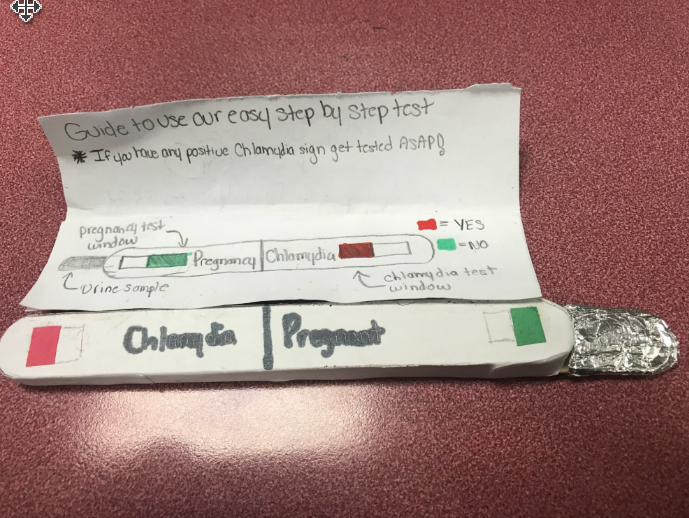 Guide to use our easy step by step test
* If you have any positive Chlamydia sign get tested ASAP!
pregnancy test
window
= YES
= NO
Pregnancy | Chlamydia
Urine sample
chlamydia test
window
Chlamydia | Pregnant